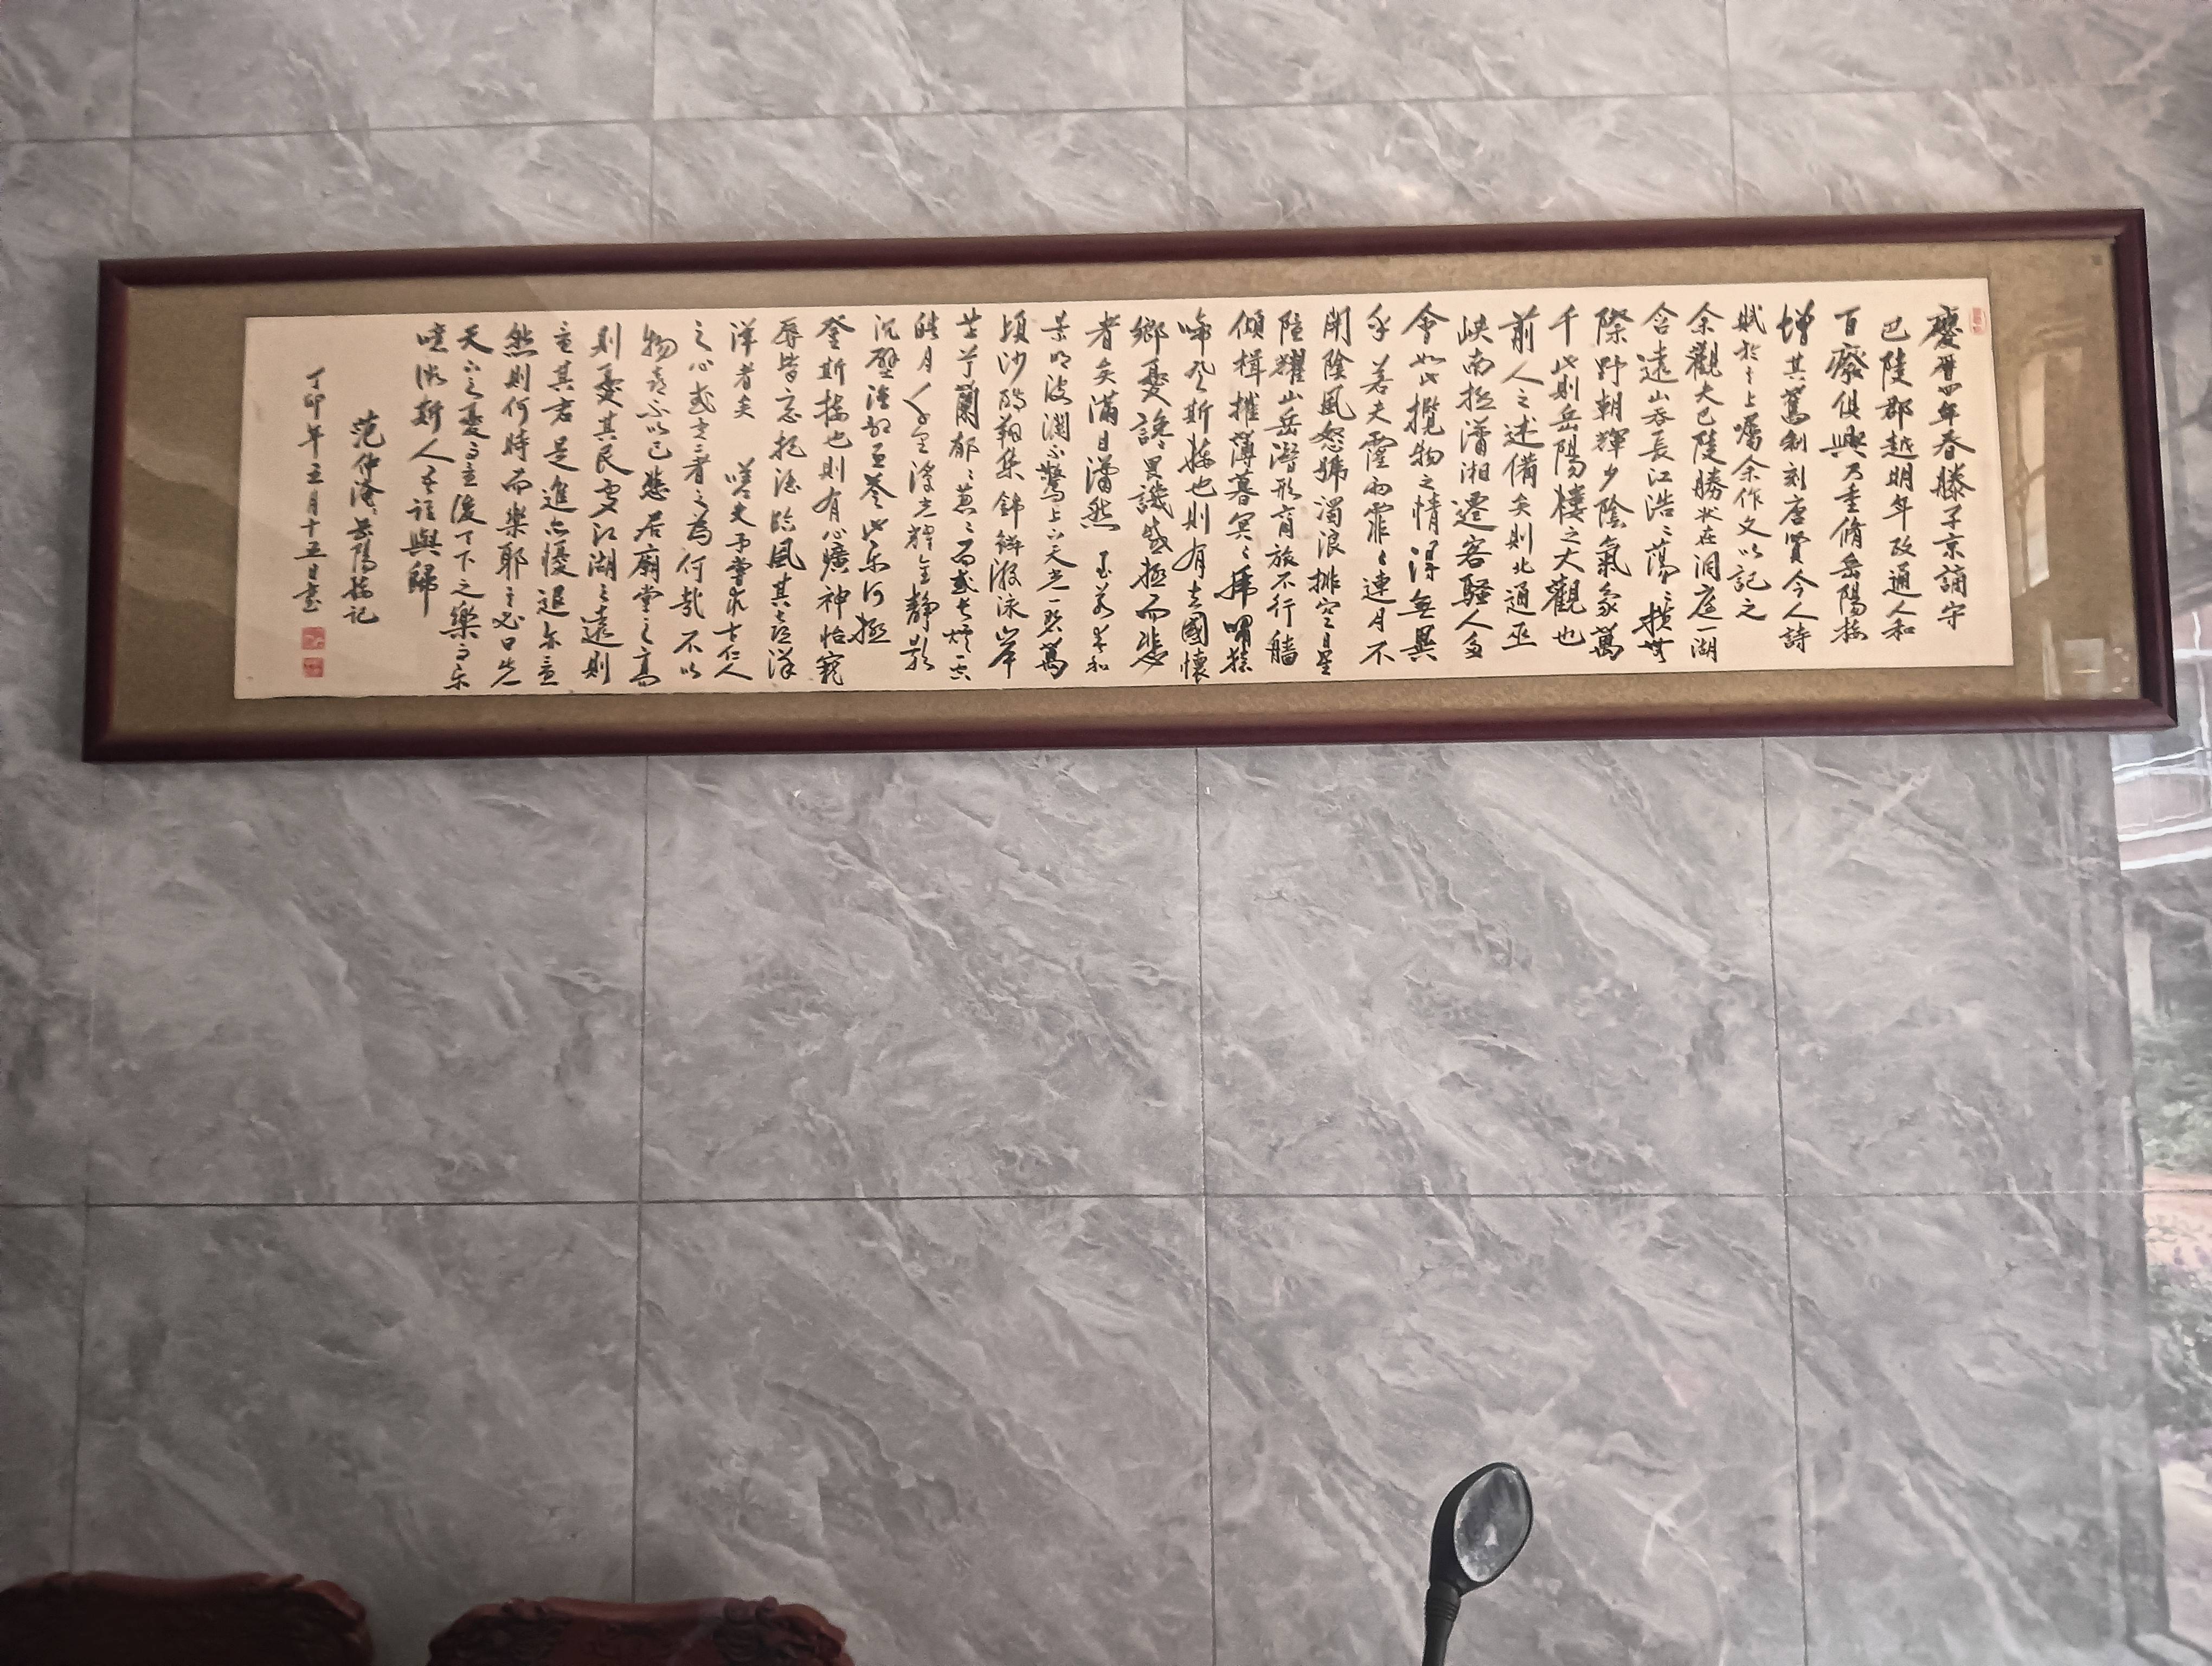 慶曆四年春滕子京謫守
巴陵郡越明年政通人和
百廢俱興乃重脩岳陽樓
增其舊制刻唐賢今人詩
賦於其上囑余作文以記之
余觀夫巴陵勝狀在洞庭一湖
含遠山吞長江浩浩蕩蕩橫無
際野朝輝夕陰氣象萬
千此則岳陽樓之大觀也
前人之述備矣則北通巫
峽南極瀟湘遷客騷人多
會於此攬物之情得無異
乎 若夫霪雨霏霏連月不
開陰風怒號濁浪排空日星
隱耀山岳潛形商旅不行檣
傾楫摧薄暮冥冥虎嘯猿
啼登斯樓也則有去國懷
鄉憂讒畏譏感極而悲
者矣滿目瀟然 至若春和
景明波瀾不驚上下天光一碧萬
頃沙鷗翔集錦鱗游泳岸
芷汀蘭郁郁蔥蔥而或長煙一空
皓月千里浮光耀金靜影
沉璧漁歌互答此樂何極
登斯樓也則有心曠神怡寵
辱皆忘把酒臨風其喜洋
洋者矣 嗟夫予嘗求古仁人
之心或異二者之為何哉不以
物喜不以己悲居廟堂之高
則憂其民處江湖之遠則
憂其君是進亦憂退亦憂
然則何時而樂耶其必曰先
天下之憂而憂後天下之樂而樂
噫微斯人吾誰與歸
范仲淹岳陽樓記
丁卯年五月十五日書